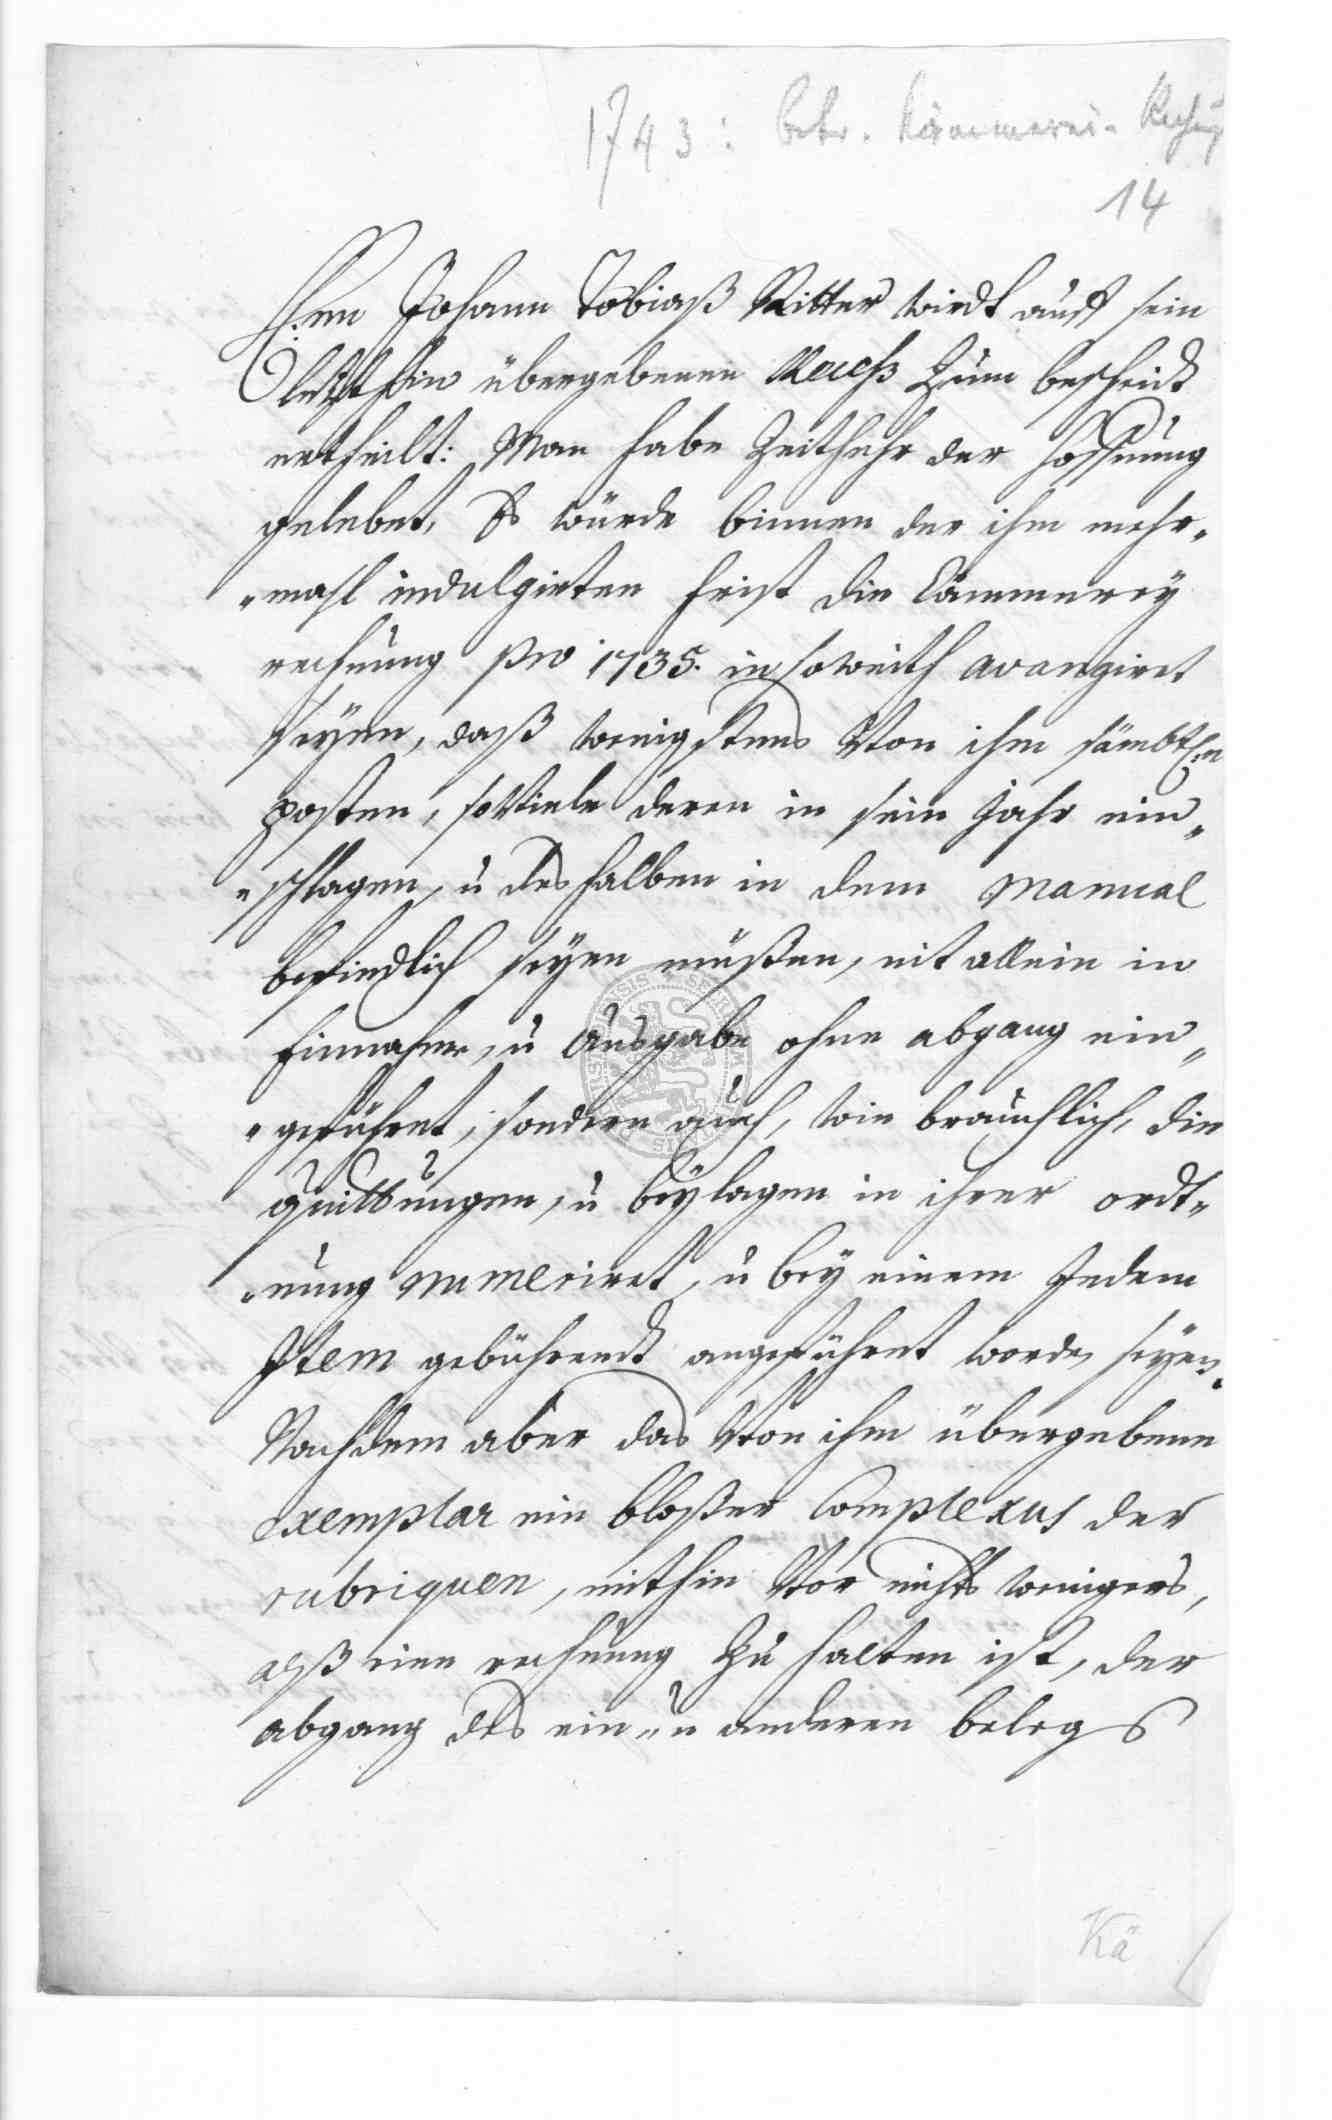 1743: betr. Kämmerei-Rechng
14
Herrn Johann Tobiaß Ritter wirdt auff sein
letzthin übergebenen Reuerß zum bescheidt
ertheilt: Man habe Zeithehr der hoffnung
gelebet, Es würde binnen der ihm mehr„
„mahl indulgirten frist die Cämmerey
rechnung pro 1735. in soweith avanziret
seyen, daß wenigstens von ihm sämbtl:n
posten, soviele deren in sein Jahr ein„
„schlagen, ŭ deshalben in dem Manual
befindlich seyen müßen, nit allein in
Einnahm, ŭ Ausgabe ohne abgang ein„
„geführet, sondern auch, wie bräuchlich, die
quittungen, ŭ beylagen in ihrer ordt„
„nung numeriret, ŭ bey einem Jedem
Item gebührendt angeführet worden seyen.
Nachdem aber das von ihm übergebene
exemplar ein bloßer Complexus der
rubriquen, mithin vor nichts wenigers,
alß eine rechnung zu halten ist, der
abgang des ein„ ŭ anderen belegs
Kä